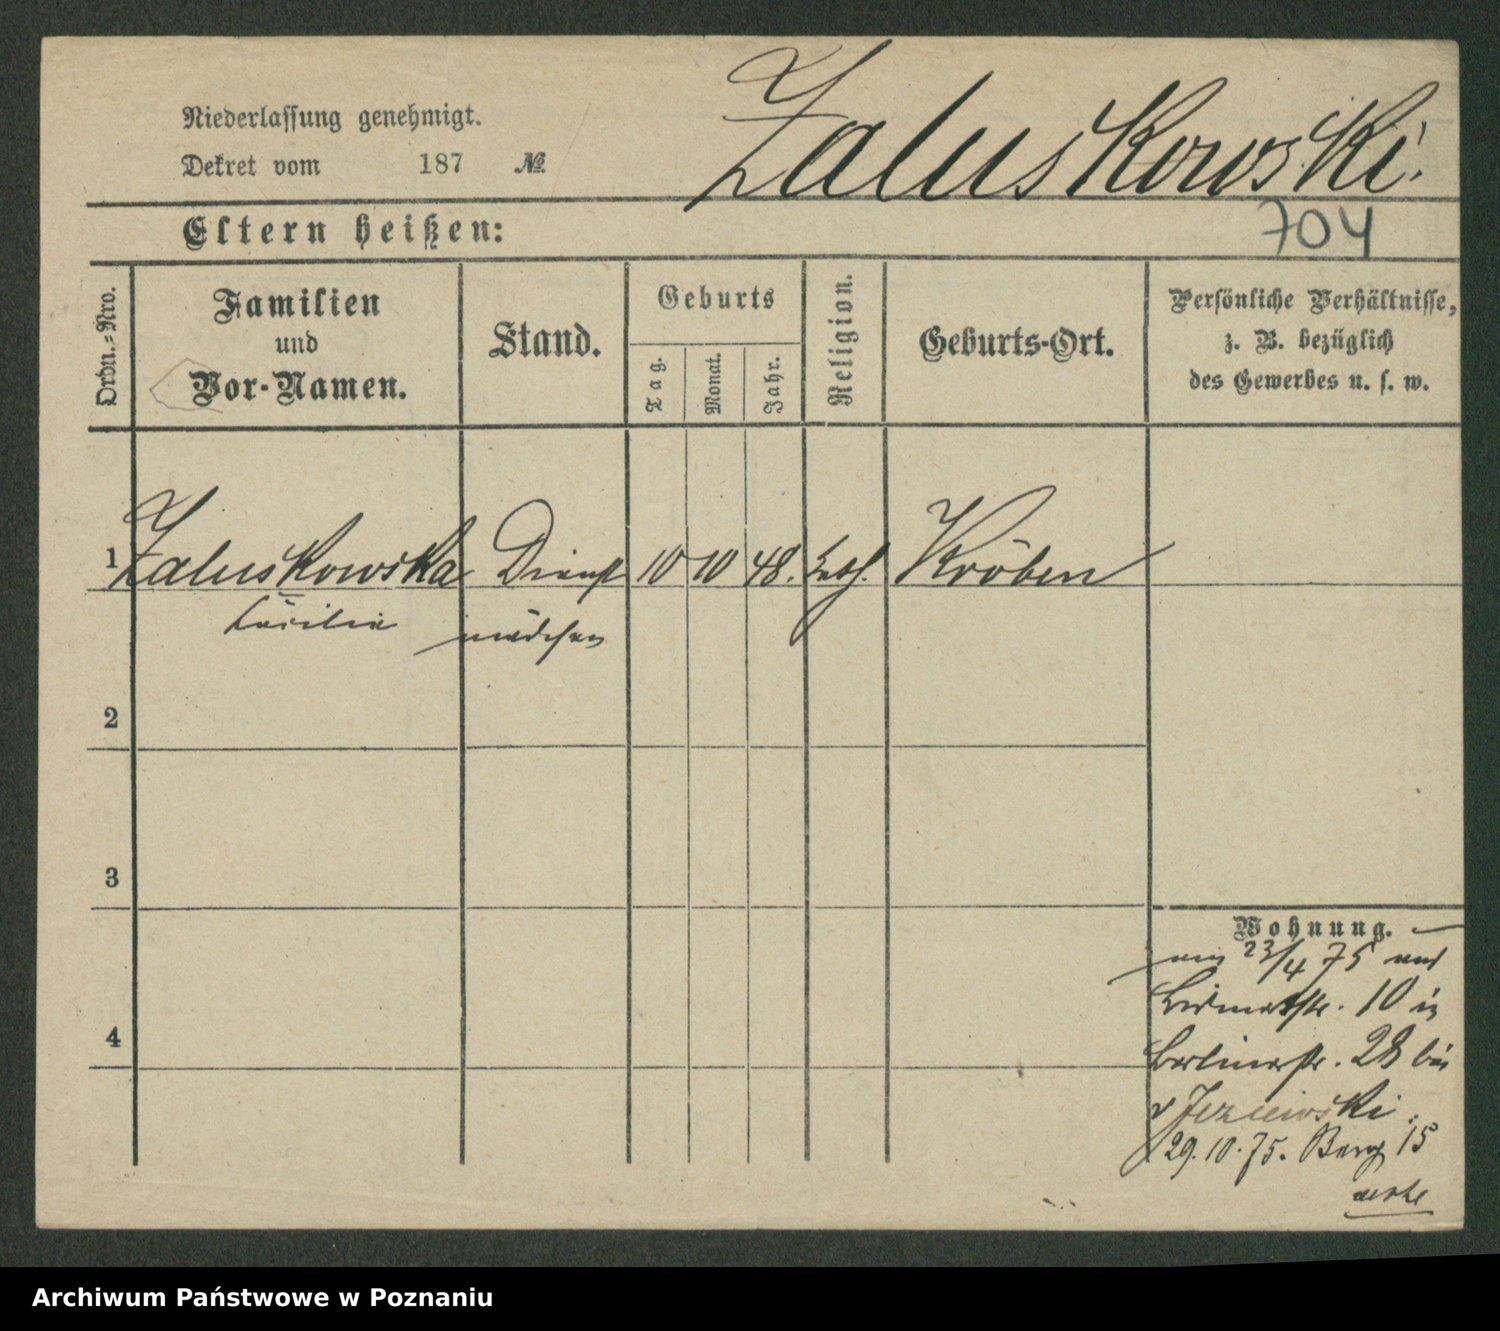 Niederlassung genehmigt.
Dekret vom 187 №
Zaluskowski.
704
Eltern heißen:
Ordn.-Nro.
Familien
und
Vor-Namen.
Stand.
Geburts
Tag.
Monat.
Jahr.
Religion.
Geburts-Ort.
Persönliche Verhältnisse,
z. B. bezüglich
des Gewerbes u. s. w.
1 Zaluskowska Dienst 10 10 48. kath. Kröben
Cäcilie mädchen
2
3
4
Wohnung.
am 23/4 75 aus
str. 10 in
Berlinerstr. 28 bei
v
29.10.75. Berg 15
Archiwum Państwowe w Poznaniu